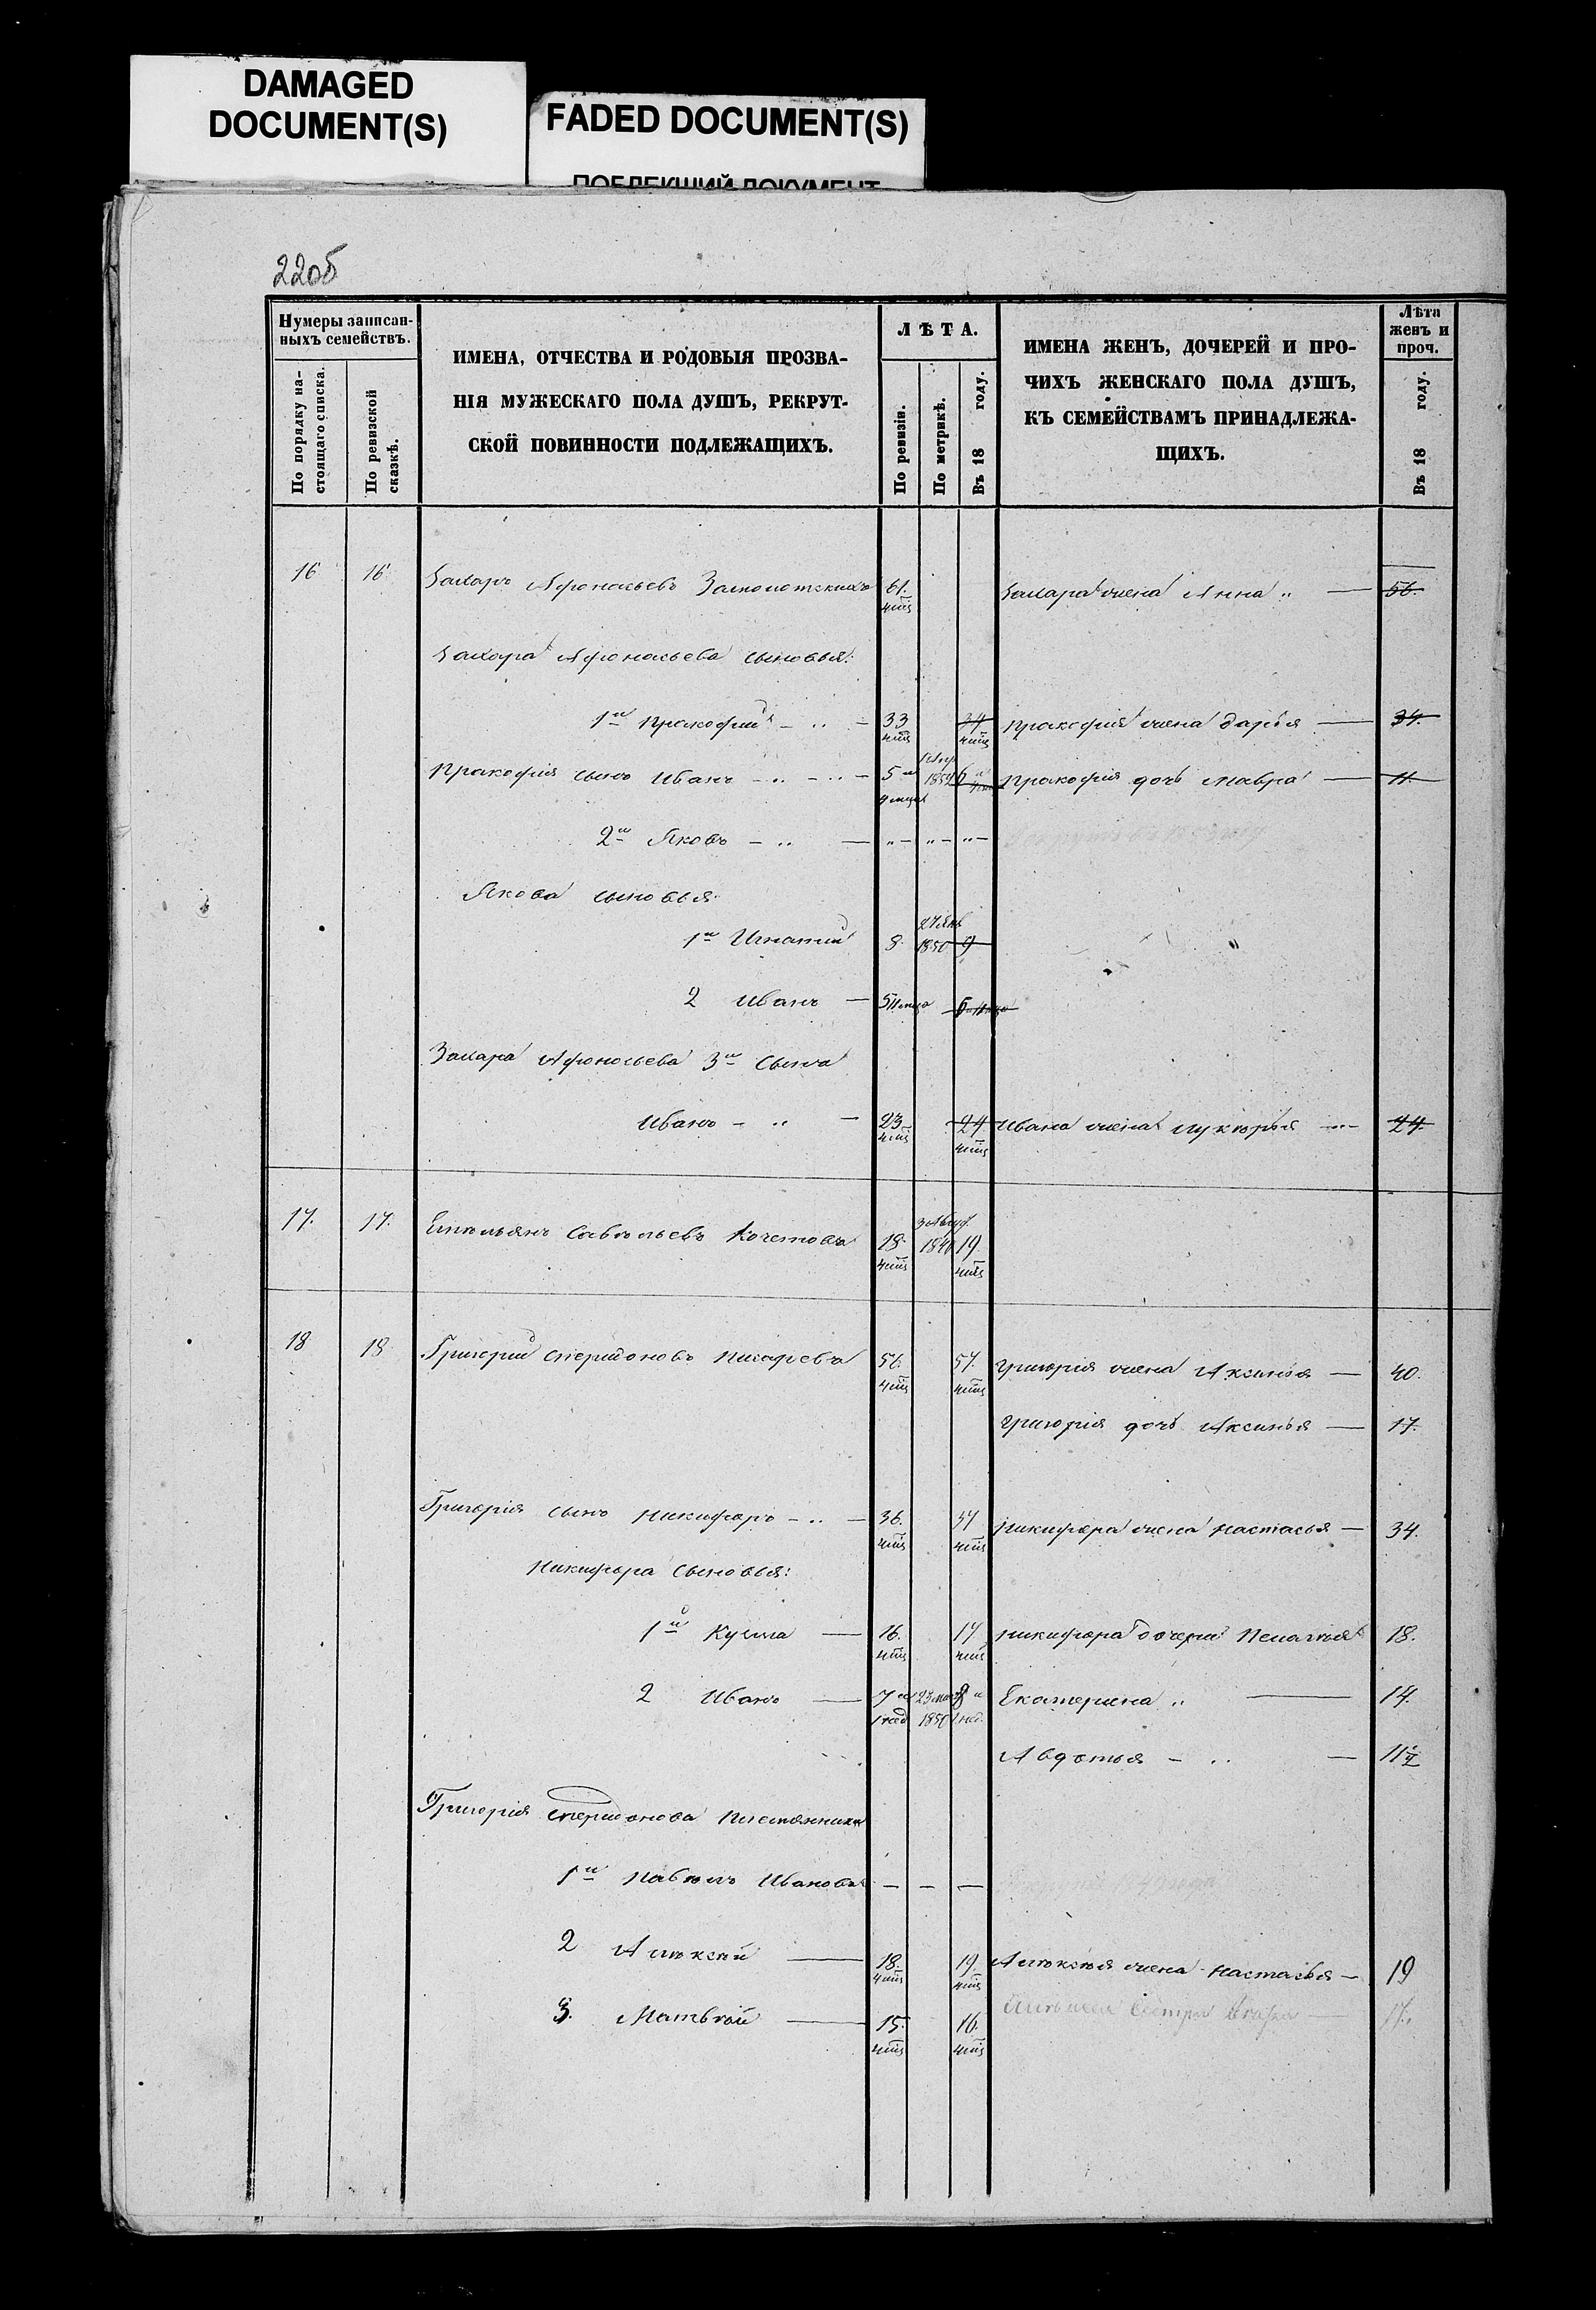 DAMAGED
DOCUMENT(S)
FADED DOCUMENT(S)
ПОБЛЕКШИЙ ДОКУМЕНТ
22об
Нумеры записан-
ныхъ семействъ.
По порядку на-
стоящаго списка.
По ревизской
сказкѣ.
ИМЕНА, ОТЧЕСТВА И РОДОВЫЯ ПРОЗВА-
НІЯ МУЖЕСКАГО ПОЛА ДУШЪ, РЕКРУТ-
СКОЙ ПОВИННОСТИ ПОДЛЕЖАЩИХЪ.
ЛѢТА.
По ревизіи.
По метрикѣ.
Въ 18 году.
ИМЕНА ЖЕНЪ, ДОЧЕРЕЙ И ПРО-
ЧИХЪ ЖЕНСКАГО ПОЛА ДУШЪ,
КЪ СЕМЕЙСТВАМЪ ПРИНАДЛЕЖА-
ЩИХЪ.
Лѣта
женъ и
проч.
Въ 18 году.
16 16 Захаръ Афонасьевъ 61. Захара жена Анна „ — 56.
Захара Афонасьева сыновья:
1й Прокофий — „ — 33 34 Прокофия жена Дарья — 34.
Прокофія сынъ Иванъ — „ — „ — 5 и 1852 6 и Прокофія дочь Мавра — 11.
2й Яковъ — „ — „ — „ — „ —
Якова сыновья:
1й Игнатий 8. 27 Янв 1850 9
2 Иванъ — 5 6
Захара Афонасьева 3й сынъ
Иванъ — „ — 23 24 Ивана жена Лукерья — „ — 24.
17. 17. Емельянъ Савельевъ Кочетовъ 18. 1840 19.
18 18 Григорий Спиридоновъ Писаревъ 56. 57. Григорія жена Аксинья — 40.
Григорія дочь Аксинья — 17.
Григорія сынъ Никифоръ — „ — 36. 37 Никифора жена Настасья — 34.
Никифора сыновья:
1й Кузма — 16. 17 Никифора дочери Пелагия 18.
2 Иванъ — 7 и 1 нед. 23 1850 8 и 1 нед. Екатерина „ — 14.
Авдотья — „ — 11½
Григорія Спиридонова племянники
1й Павелъ Ивановъ — — —
2 Алексѣй — 18. 19. Алексѣя жена Настасья — 19
3. Матвѣй — 15. 16.